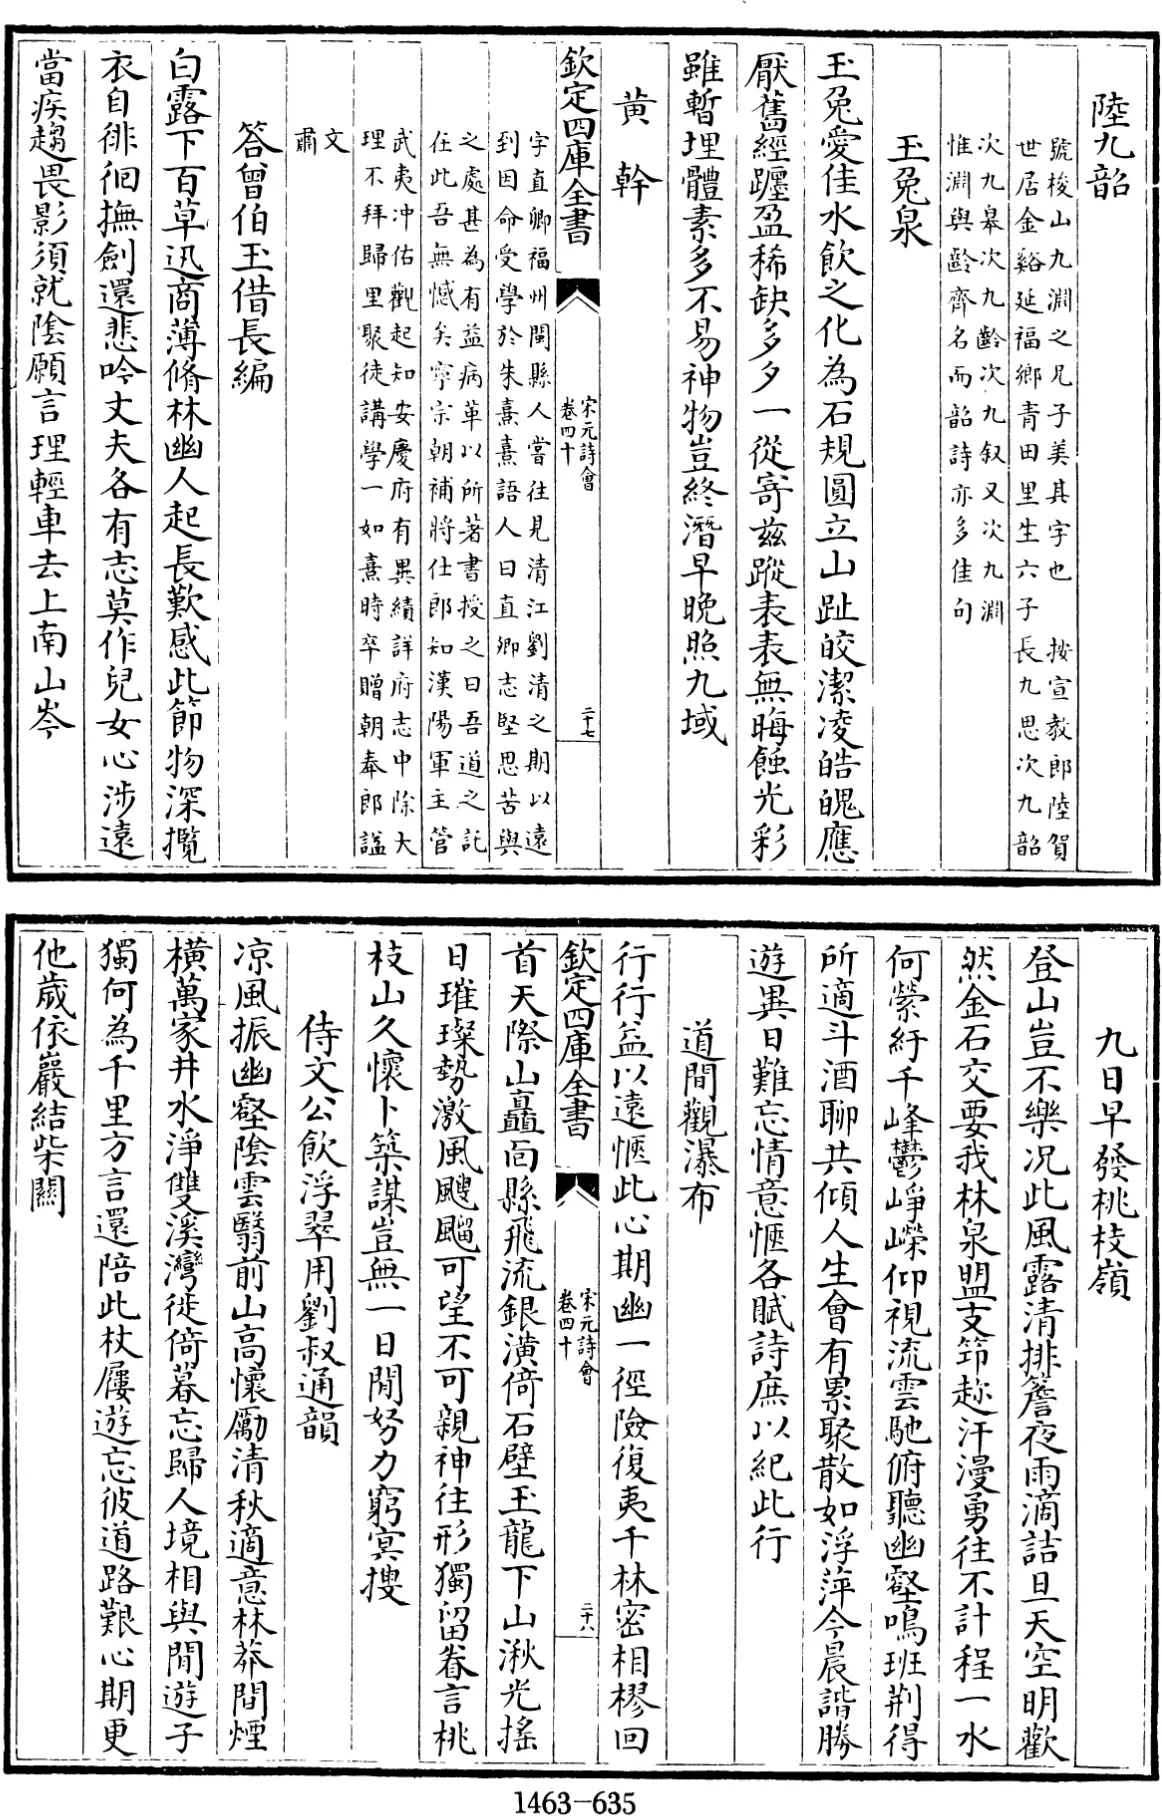 陸九韶
號梭山九淵之兄子美其字也　按宣教郎陸賀
世居金谿延福鄉青田里生六子長九思次九韶
次九皋次九齡次九叙又次九淵
惟淵與齡齊名而韶詩亦多佳句
玉兔泉
玉兔愛佳水飲之化為石規圓立山趾皎潔凌皓魄應
厭舊經躔盈稀缺多夕一從寄兹蹤表表無晦蝕光彩
雖暫埋體素多不易神物豈終潛早晚照九域
黄幹
字直卿福州閩縣人嘗往見清江劉清之期以遠
到因命受學於朱熹熹語人曰直卿志堅思苦與
之處甚為有益病革以所著書授之曰吾道之託
在此吾無憾矣寧宗朝補將仕郎知漢陽軍主管
武夷冲佑觀起知安慶府有異績詳府志中除大
理不拜歸里聚徒講學一如熹時卒贈朝奉郎諡
文
肅
答曾伯玉借長編
白露下百草迅商薄脩林幽人起長歎感此節物深攬
衣自徘徊撫劍還悲吟丈夫各有志莫作兒女心涉遠
當疾趨畏影須就陰願言理輕車去上南山岑
欽定四庫全書
宋元詩會
卷四十
二十七
九日早發桃枝嶺
登山豈不樂况此風露清排簷夜雨滴詰旦天空明歡
然金石交要我林泉盟支笻趂汗漫勇往不計程一水
何縈紆千峰鬱崢嶸仰視流雲馳俯聽幽壑鳴班荆得
所適斗酒聊共傾人生會有累聚散如浮萍今晨諧勝
遊異日難忘情意愜各賦詩庶以紀此行
道間觀瀑布
行行益以遠愜此心期幽一徑險復夷千林密相樛回
首天際山矗靣縣飛流銀潢倚石壁玉龍下山湫光搖
日璀璨勢激風颼飀可望不可親神往形獨留眷言桃
枝山久懷卜築謀豈無一日閒努力窮冥搜
侍文公飲浮翠用劉叔通韻
凉風振幽壑陰雲翳前山高懷勵清秋適意林莽間煙
橫萬家井水淨雙溪灣徙倚暮忘歸人境相與閒遊子
獨何為千里方言還陪此杖屨遊忘彼道路艱心期更
他歲依巖結柴關
欽定四庫全書
宋元詩會
卷四十
二十八
1463-635